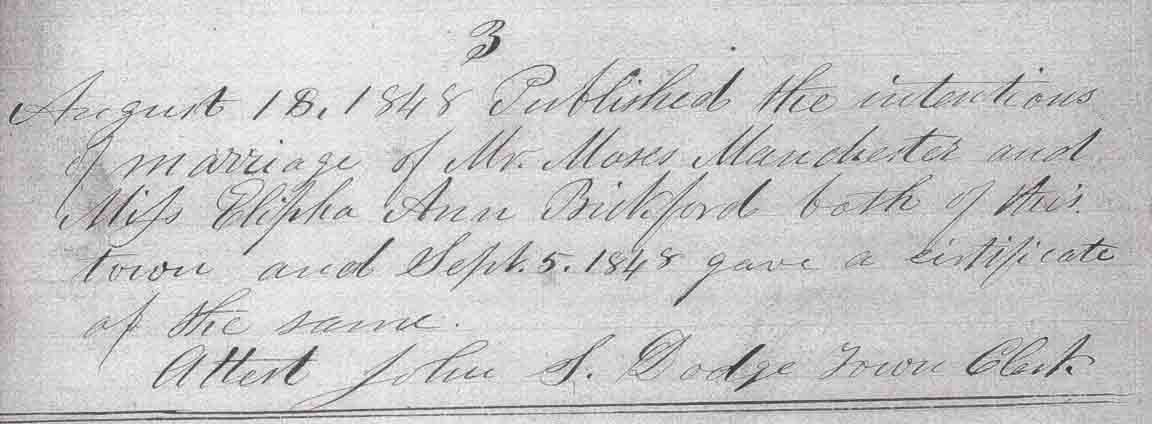 3
August 18, 1848 Published the intentions
of marriage of Mr. Moses Manchester and
Miss Elipha Ann Bickford both of this
town and Sept. 5. 1848 gave a certificate
of the same.
Attest John S. Dodge Town Clerk